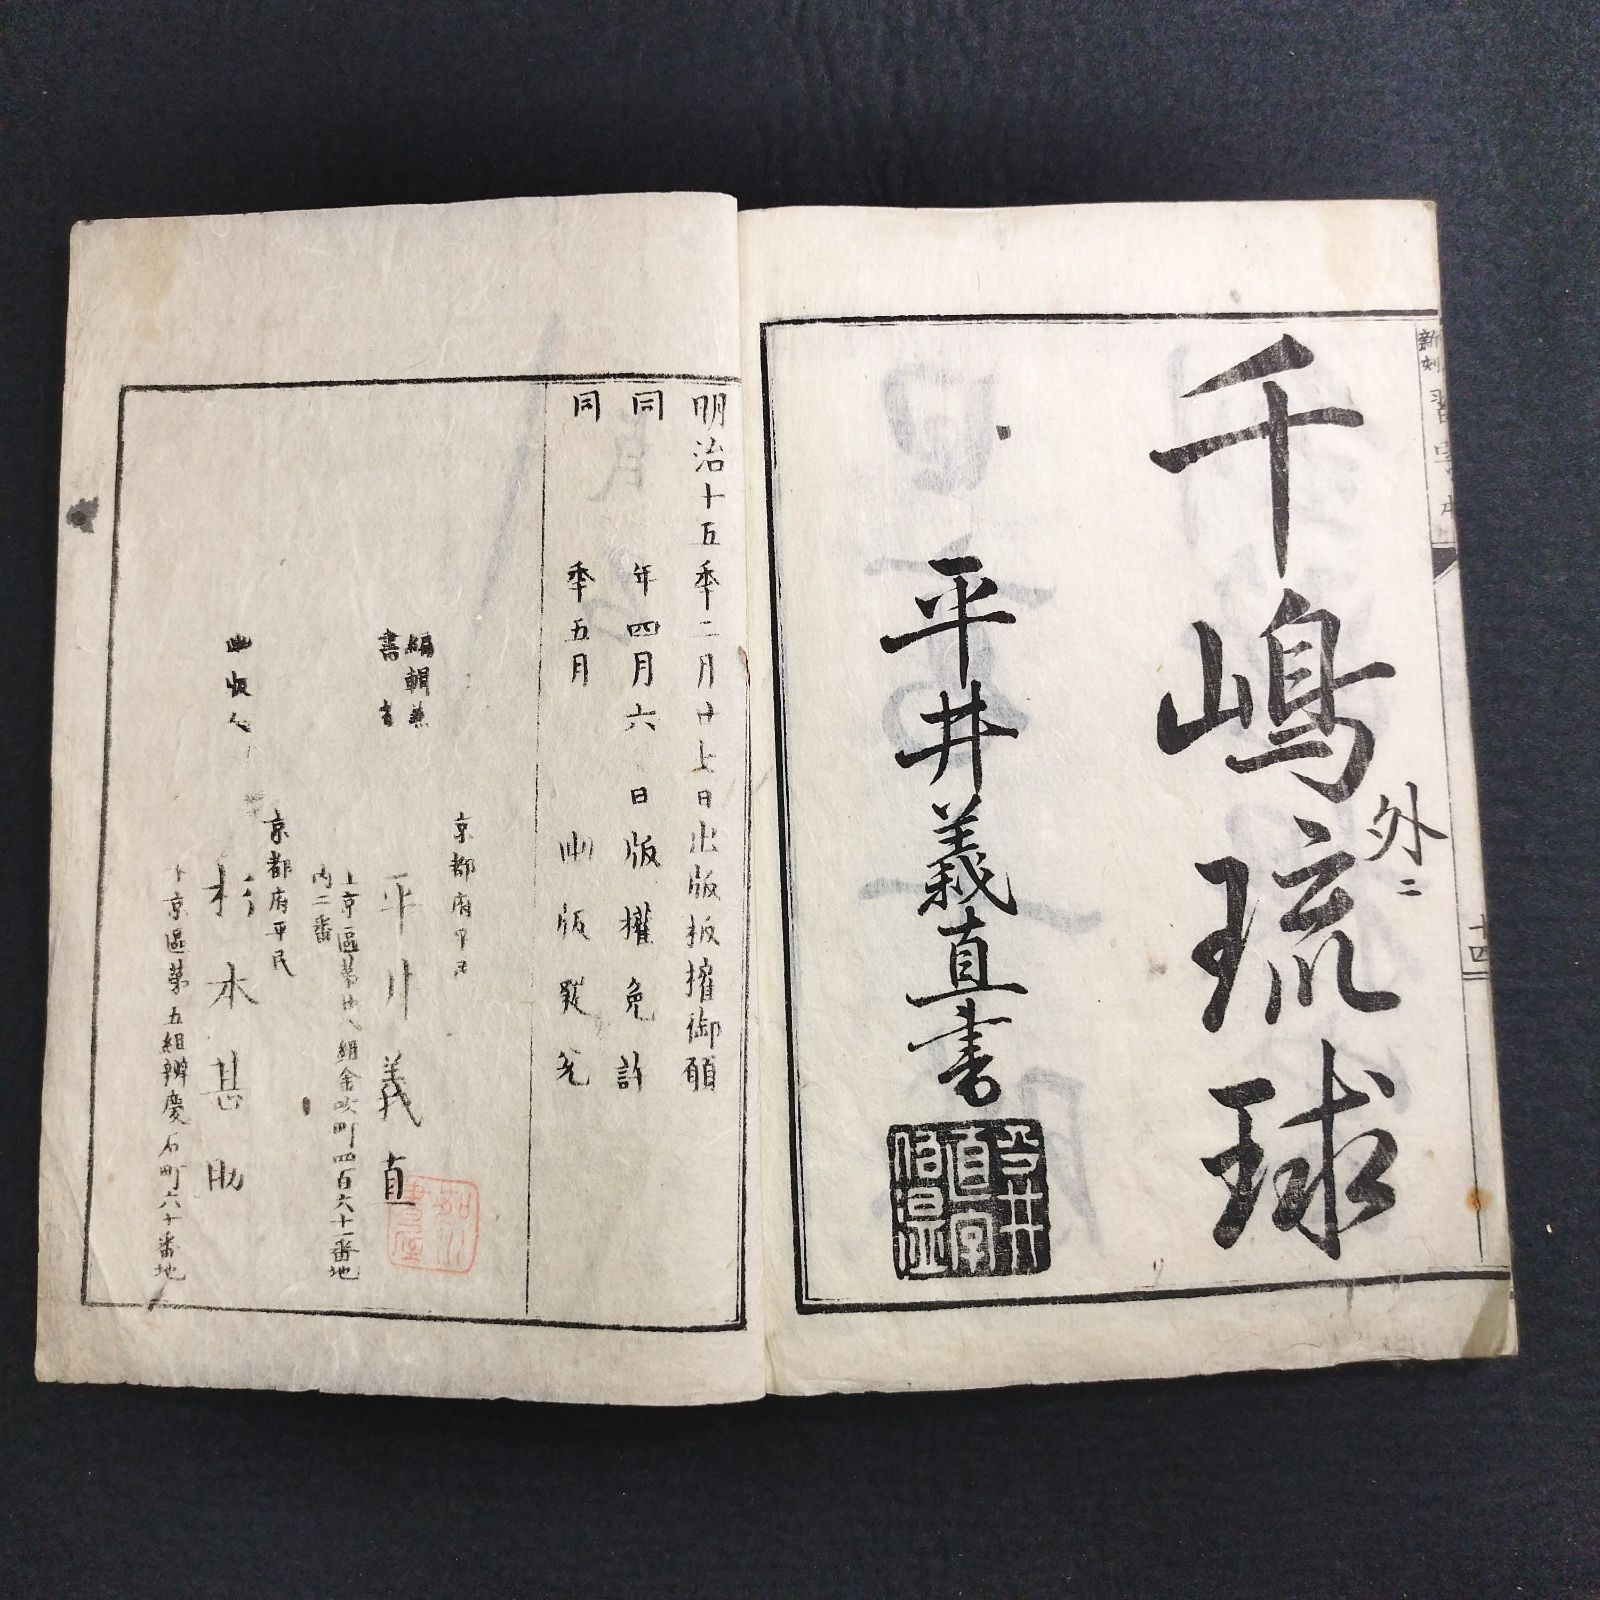 新刻習字本
十四
千嶋琉球
外二
平井義直書
明治十五年二月廿七日出版板権御願
同年四月六日版權免許
同年五月出版發兌
京都府平民
編輯兼
書者
平井義直
上京區第廿八組金吹町四百六十一番地
内二番
京都府平民
出版人
杉本甚助
下京區第五組辨慶石町六十番地